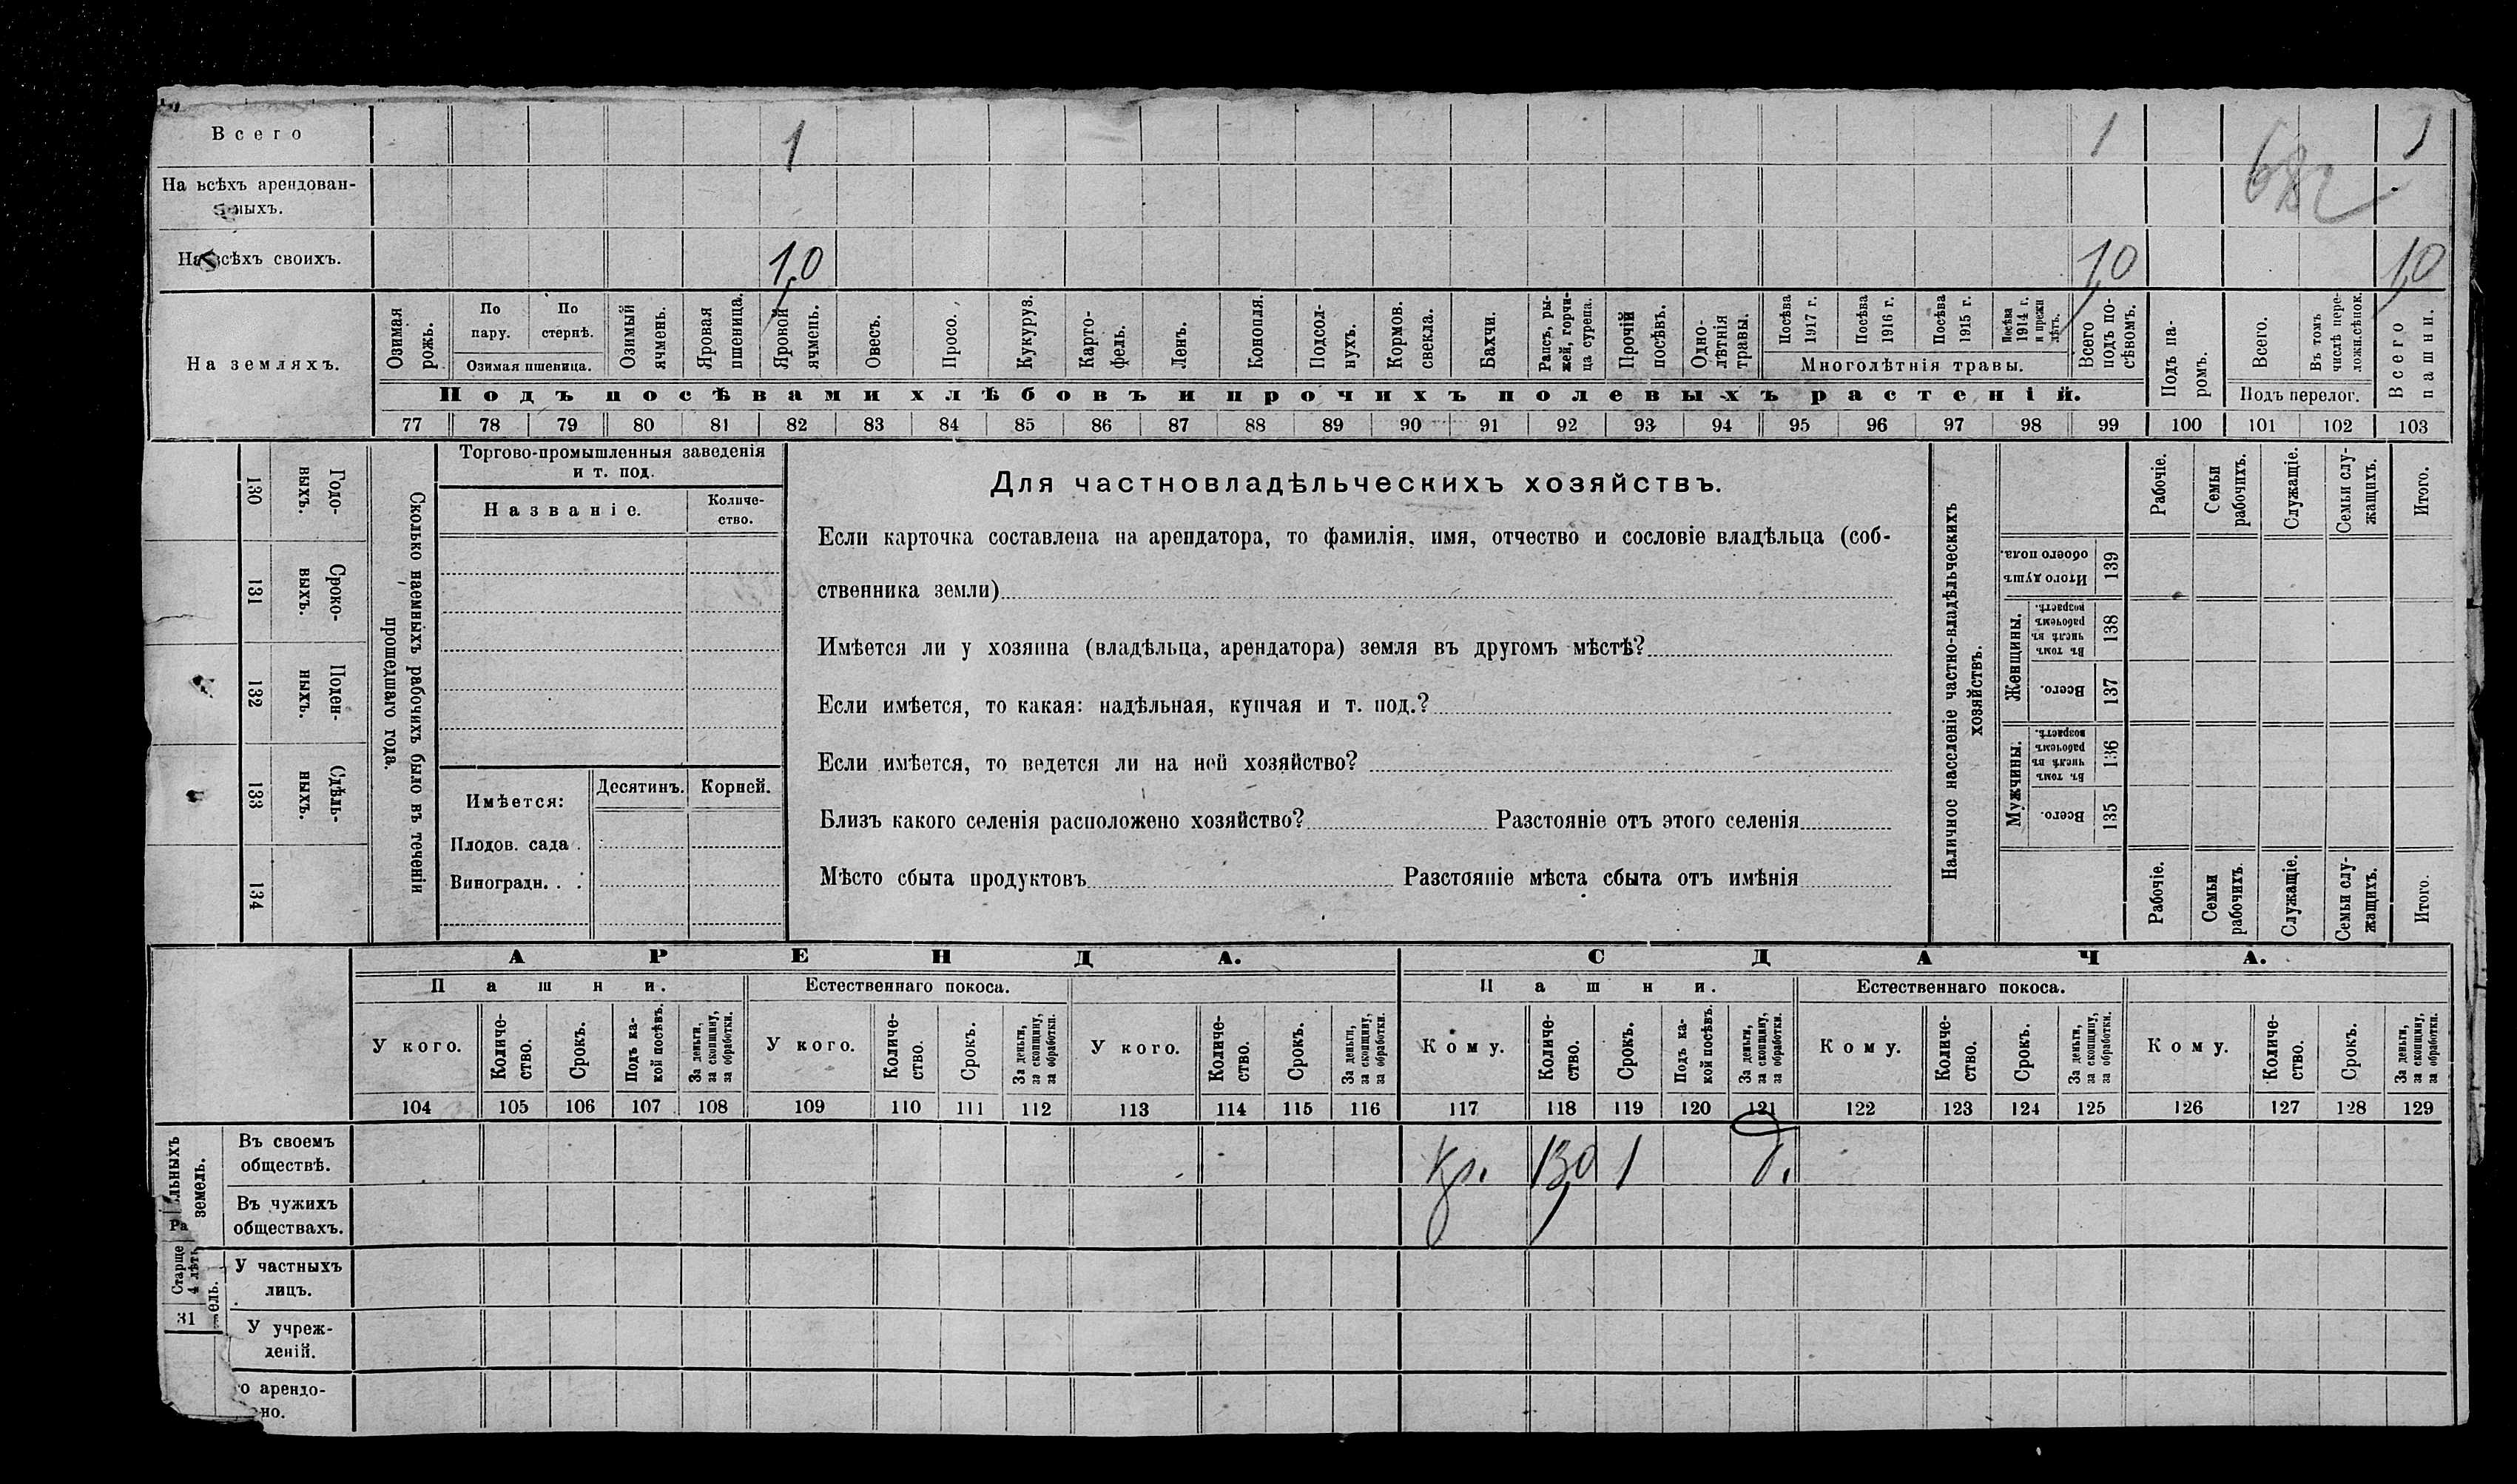 Всего 1 1 1
На всѣхъ арендован-
ныхъ.
На всѣхъ своихъ. 1,0 1,0 1,0
На земляхъ.
Озимая рожь.
По пару.
По стернѣ.
Озимая пшеница.
Озимый ячмень.
Яровая пшеница.
Яровой ячмень.
Овесъ.
Просо.
Кукуруз.
Карто-
фель.
Ленъ.
Конопля.
Подсол-
нухъ.
Кормов. свекла.
Бахчи.
Рапсъ, ры-
жей, горчи-
ца сурепа.
Прочій посѣвъ.
Одно-
лѣтнія травы.
Посѣва 1917 г.
Посѣва 1916 г.
Посѣва 1915 г.
Посѣва 1914 г. и прежн лѣтъ.
Многолѣтнія травы.
Всего подъ по-
сѣвомъ.
Подъ па-
ромъ.
Всего.
Въ томъ числѣ пере-
ложн.сѣнок.
Подъ перелог.
Всего пашни.
Подъ посѣвами хлѣбовъ и прочихъ полевыхъ растеній.
77 78 79 80 81 82 83 84 85 86 87 88 89 90 91 92 93 94 95 96 97 98 99 100 101 102 103
130 Годо-
выхъ.
131 Сроко-
выхъ.
132 Поден-
ныхъ.
133 Сдѣль-
ныхъ.
134
Сколько наемныхъ рабочихъ было въ теченіи
прошедшаго года.
Торгово-промышленныя заведенія
и т. под.
Названіе.
Количе-
ство.
Имѣется:
Десятинъ. Корней.
Плодов. сада .
Виноградн. . .
Для частновладѣльческихъ хозяйствъ.
Если карточка составлена на арендатора, то фамилія, имя, отчество и сословіе владѣльца (соб-
ственника земли)
Имѣется ли у хозяина (владѣльца, арендатора) земля въ другомъ мѣстѣ?
Если имѣется, то какая: надѣльная, купчая и т. под.?
Если имѣется, то ведется ли на ней хозяйство?
Близъ какого селенія расположено хозяйство? Разстояніе отъ этого селенія
Мѣсто сбыта продуктовъ Разстояніе мѣста сбыта отъ имѣнія
Наличное населеніе частно-владѣльческихъ
хозяйствъ.
Рабочіе.
Семьи рабочихъ.
Служащіе.
Семьи слу-
жащихъ.
Итого.
Итого душъ обоего пола. 139
Женщины.
Въ томъ числѣ въ рабочемъ возрастѣ. 138
Всего. 137
Мужчины.
Въ томъ числѣ въ рабочемъ возрастѣ. 136
Всего. 135
Рабочіе.
Семьи рабочихъ.
Служащіе.
Семьи слу-
жащихъ.
Итого.
АРЕНДА. СДАЧА.
Пашни. Естественнаго покоса. Пашни. Естественнаго покоса.
У кого.
Количе-
ство.
Срокъ.
Подъ ка-
кой посѣвъ.
За деньги, за скопщину, за обработки.
У кого.
Количе-
ство.
Срокъ.
За деньги, за скопщину, за обработки.
У кого.
Количе-
ство.
Срокъ.
За деньги, за скопщину, за обработки.
Кому.
Количе-
ство.
Срокъ.
Подъ ка-
кой посѣвъ.
За деньги, за скопщину, за обработки.
Кому.
Количе-
ство.
Срокъ.
За деньги, за скопщину, за обработки.
Кому.
Количе-
ство.
Срокъ.
За деньги, за скопщину, за обработки.
104 105 106 107 108 109 110 111 112 113 114 115 116 117 118 119 120 121 122 123 124 125 126 127 128 129
льныхъ земель.
Въ своемъ
обществѣ. Кр. 13,0 1 д.
Въ чужихъ
обществахъ.
Ра
Старше
4 лѣтъ
31
ель.
У частныхъ
лицъ.
У учреж-
деній.
о арендо-
но.